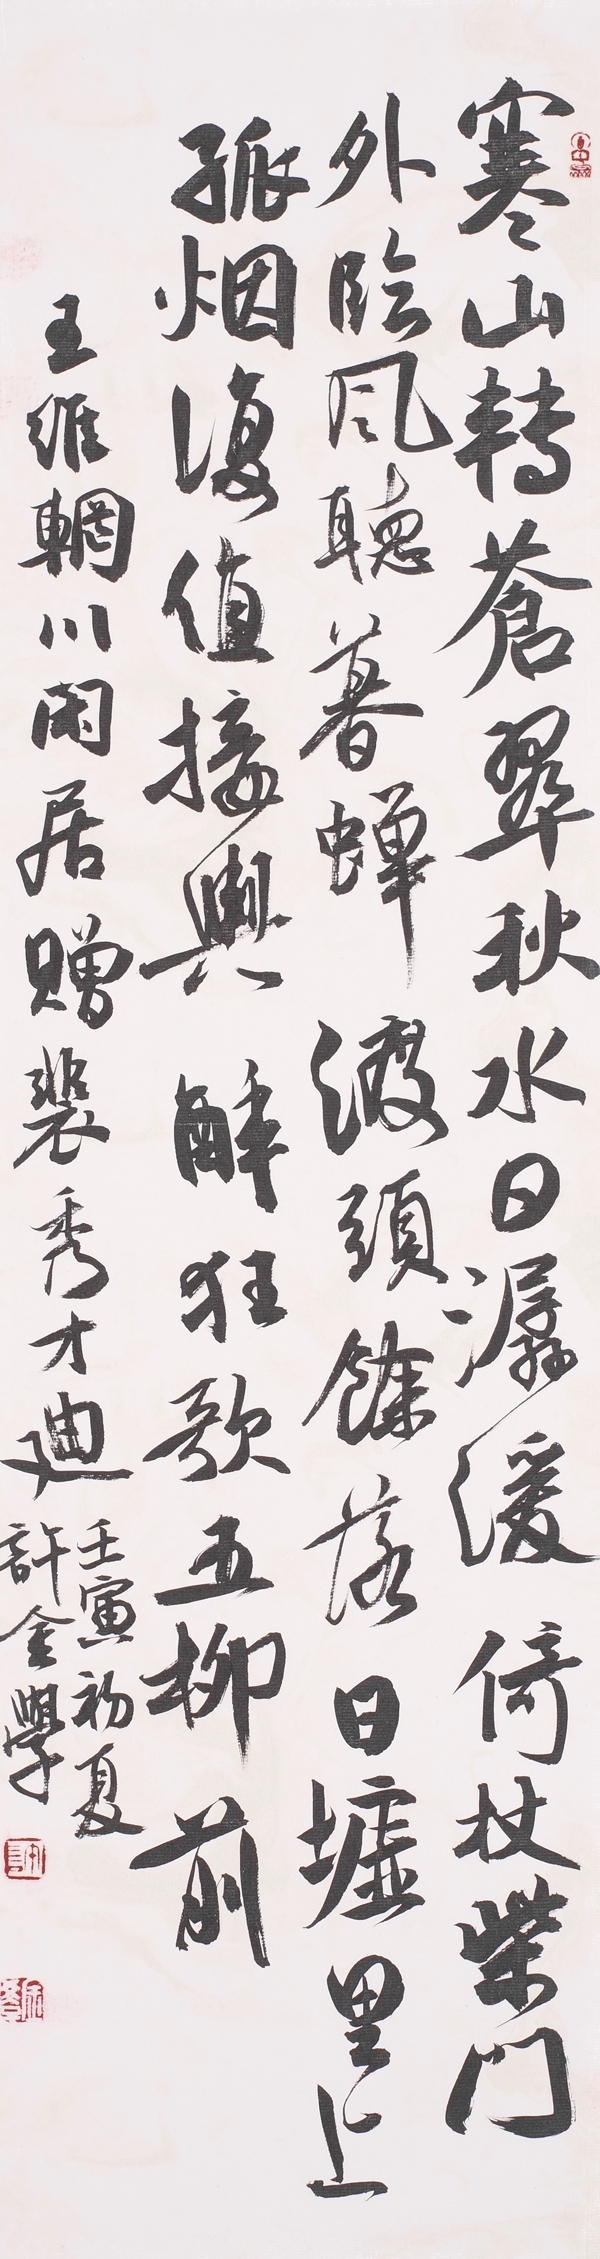 寒山轉蒼翠秋水日潺湲倚杖柴門
外臨风聽暮蝉渡頭餘落日墟里上
孤烟復值接輿醉狂歌五柳前
王維輞川闲居赠裴秀才迪
壬寅初夏
許金學